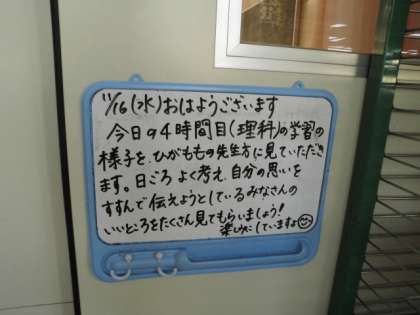 11/16(水)おはようございます
今日の4時間目(理科)の学習の
様子を、ひがももの先生方に見ていただき
ます。日ごろよく考え、自分の思いを
すすんで伝えようとしているみなさんの
いいところをたくさん見てもらいましょう!
楽しみにしていますよ